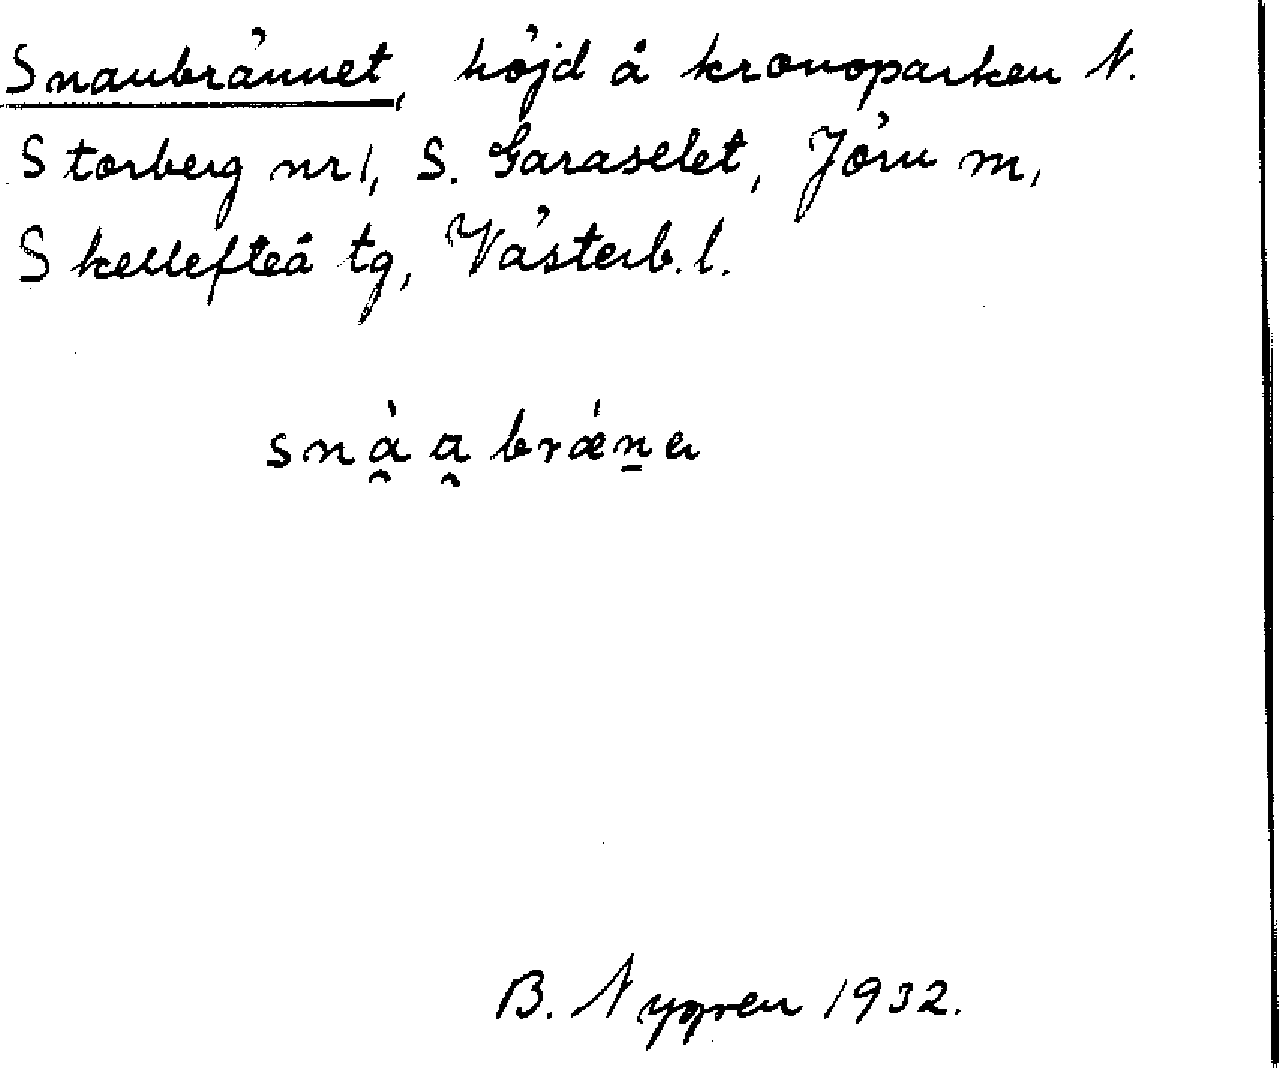 Snaubrännet, höjd å kronoparken N.
Storberg nr 1, S. Garaselet, Jörn m,
Skellefteå tg, Västerb. l.
snà̯a̯brǽn̠a
B. Nygren 1932.